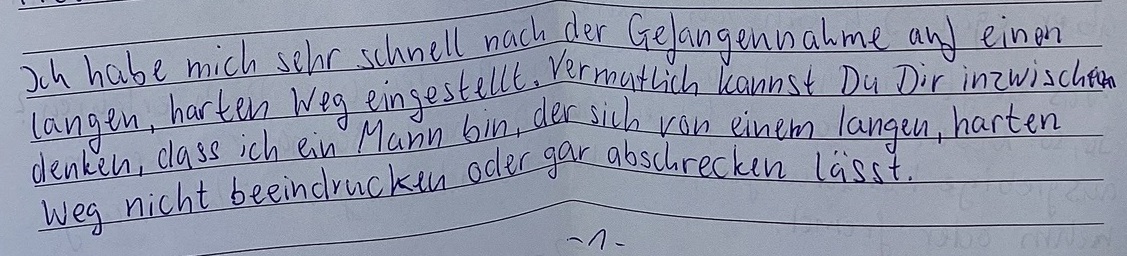 Ich habe mich sehr schnell nach der Gefangennahme auf einen
langen, harten Weg eingestellt. Vermutlich kannst Du Dir inzwischen
denken, dass ich ein Mann bin, der sich von einem langen, harten
Weg nicht beeindrucken oder gar abschrecken lässt.
-1-